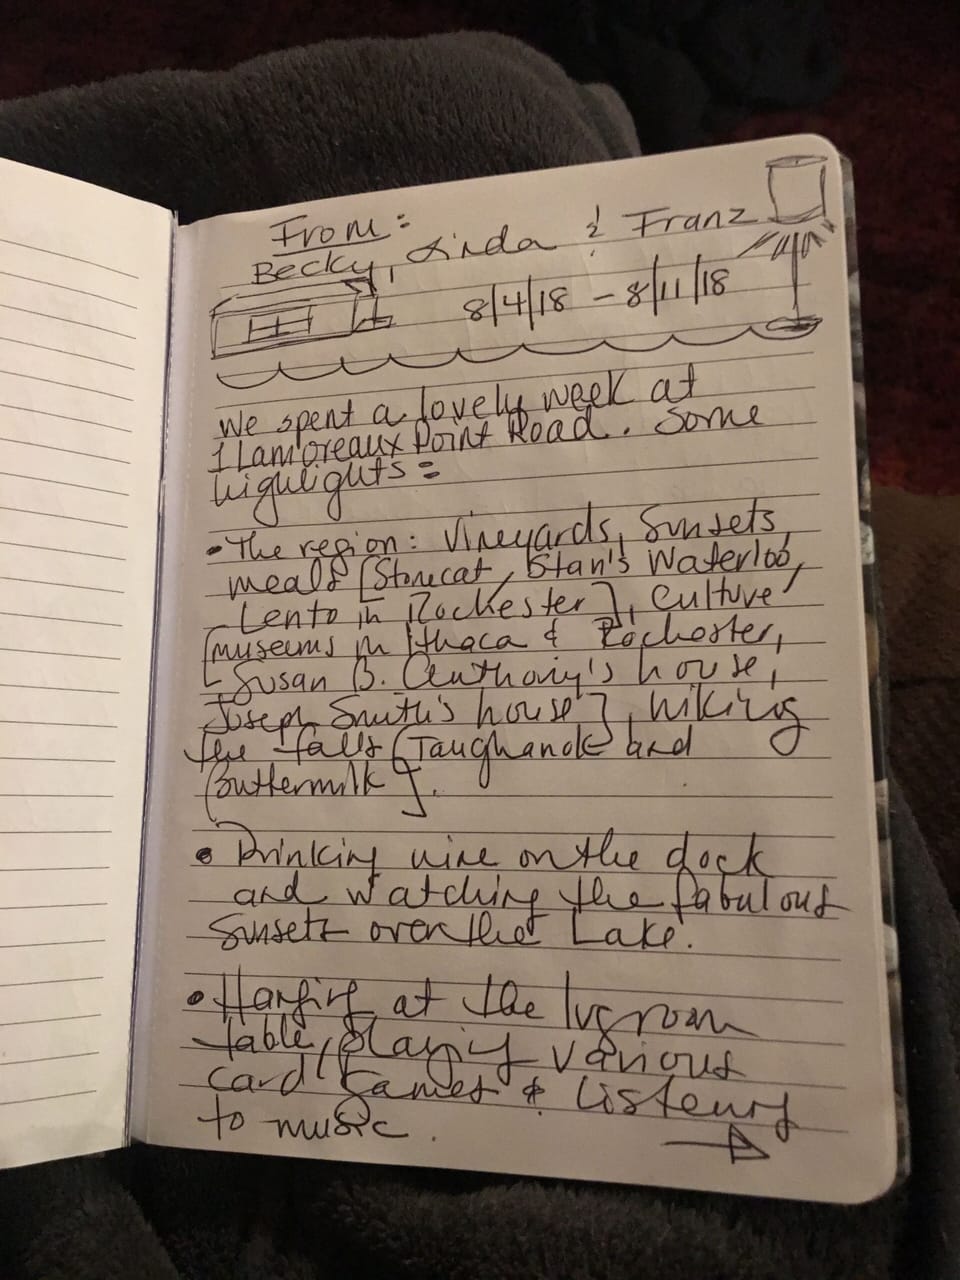 From:
Becky, Linda & Franz
8/4/18 – 8/11/18
We spent a lovely week at
1 Lamoreaux Point Road. Some
highlights:
• The region: Vineyards, Sunsets,
meals [Stonecat, Stan's Waterloo,
Lento in Rochester], culture
[museums in Ithaca & Rochester,
Susan B. Anthony's house,
Joseph Smith's house], hiking
the falls [Taughanok and
Buttermilk].
• Drinking wine on the dock
and watching the fabulous
sunsets over the Lake.
• Hanging at the lvg room
table, playing various
card games & listening
to music.